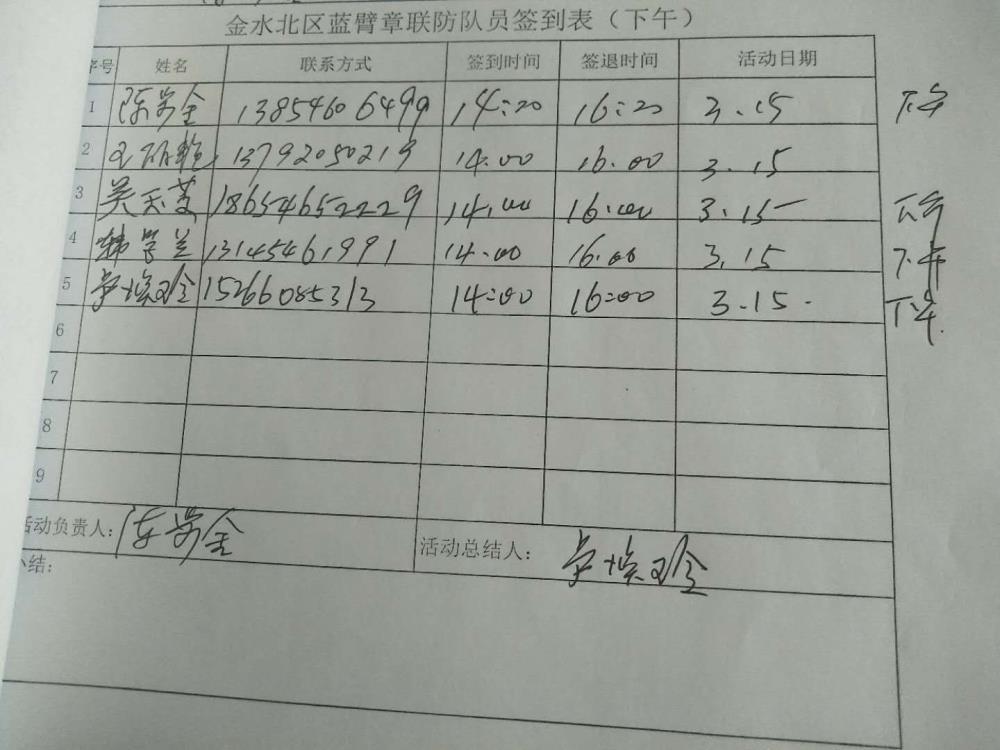 金水北区蓝臂章联防队员签到表（下午）
序号 姓名 联系方式 签到时间 签退时间 活动日期
1 陈 金 13854606499 14:20 16:20 3.15 下午
2 13792050219 14.00 16.00 3.15
3 吴玉芝 18654652229 14.00 16.00 3.15 下午
4 韩学兰 13145461991 14.00 16.00 3.15 下午
5 15266085313 14:00 16:00 3.15. 下午.
6
7
8
9
活动负责人： 陈 金 活动总结人：
小结：